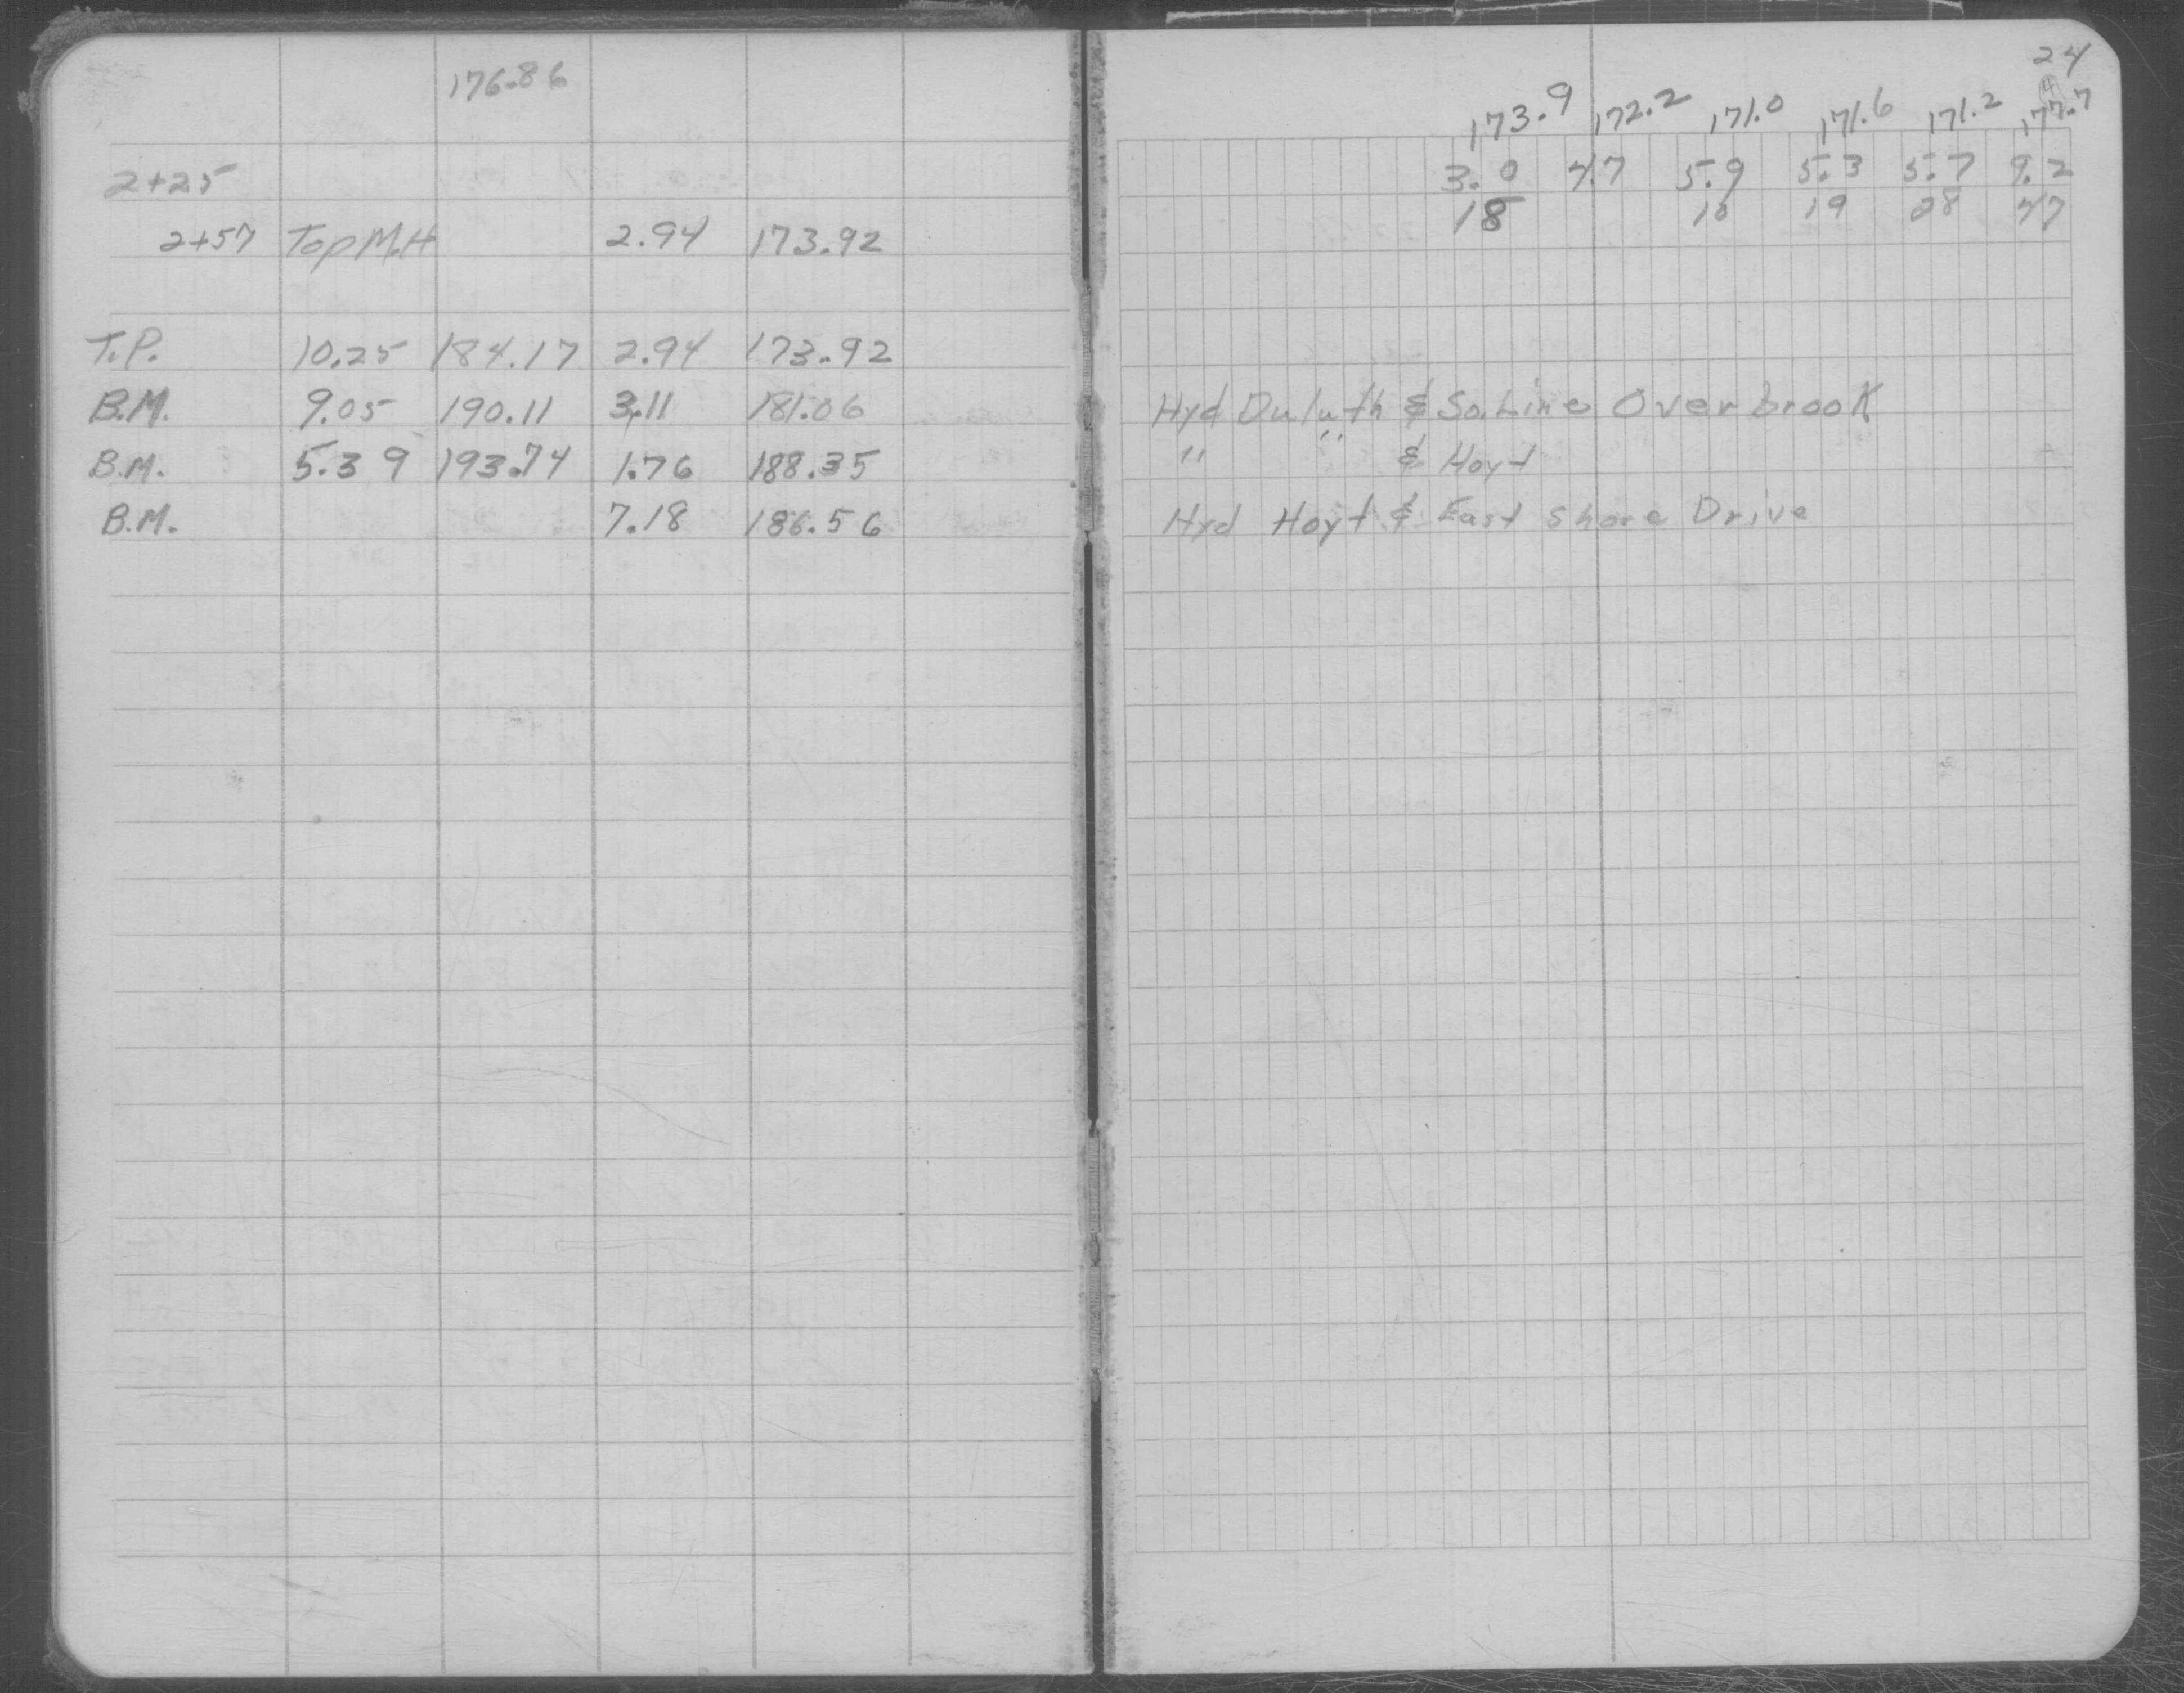 176.86
2+25
2+57 Top M.H 2.94 173.92
T.P. 10.25 184.17 2.94 173.92
B.M. 9.05 190.11 3.11 181.06
B.M. 5.39 193.74 1.76 188.35
B.M. 7.18 186.56
24
173.9 172.2 171.0 171.6 171.2 177.7
3.0 4.7 5.9 5.3 5.7 9.2
18 10 19 28 47
Hyd Duluth & So. Line Overbrook
" " & Hoyt
Hyd Hoyt & East Shore Drive